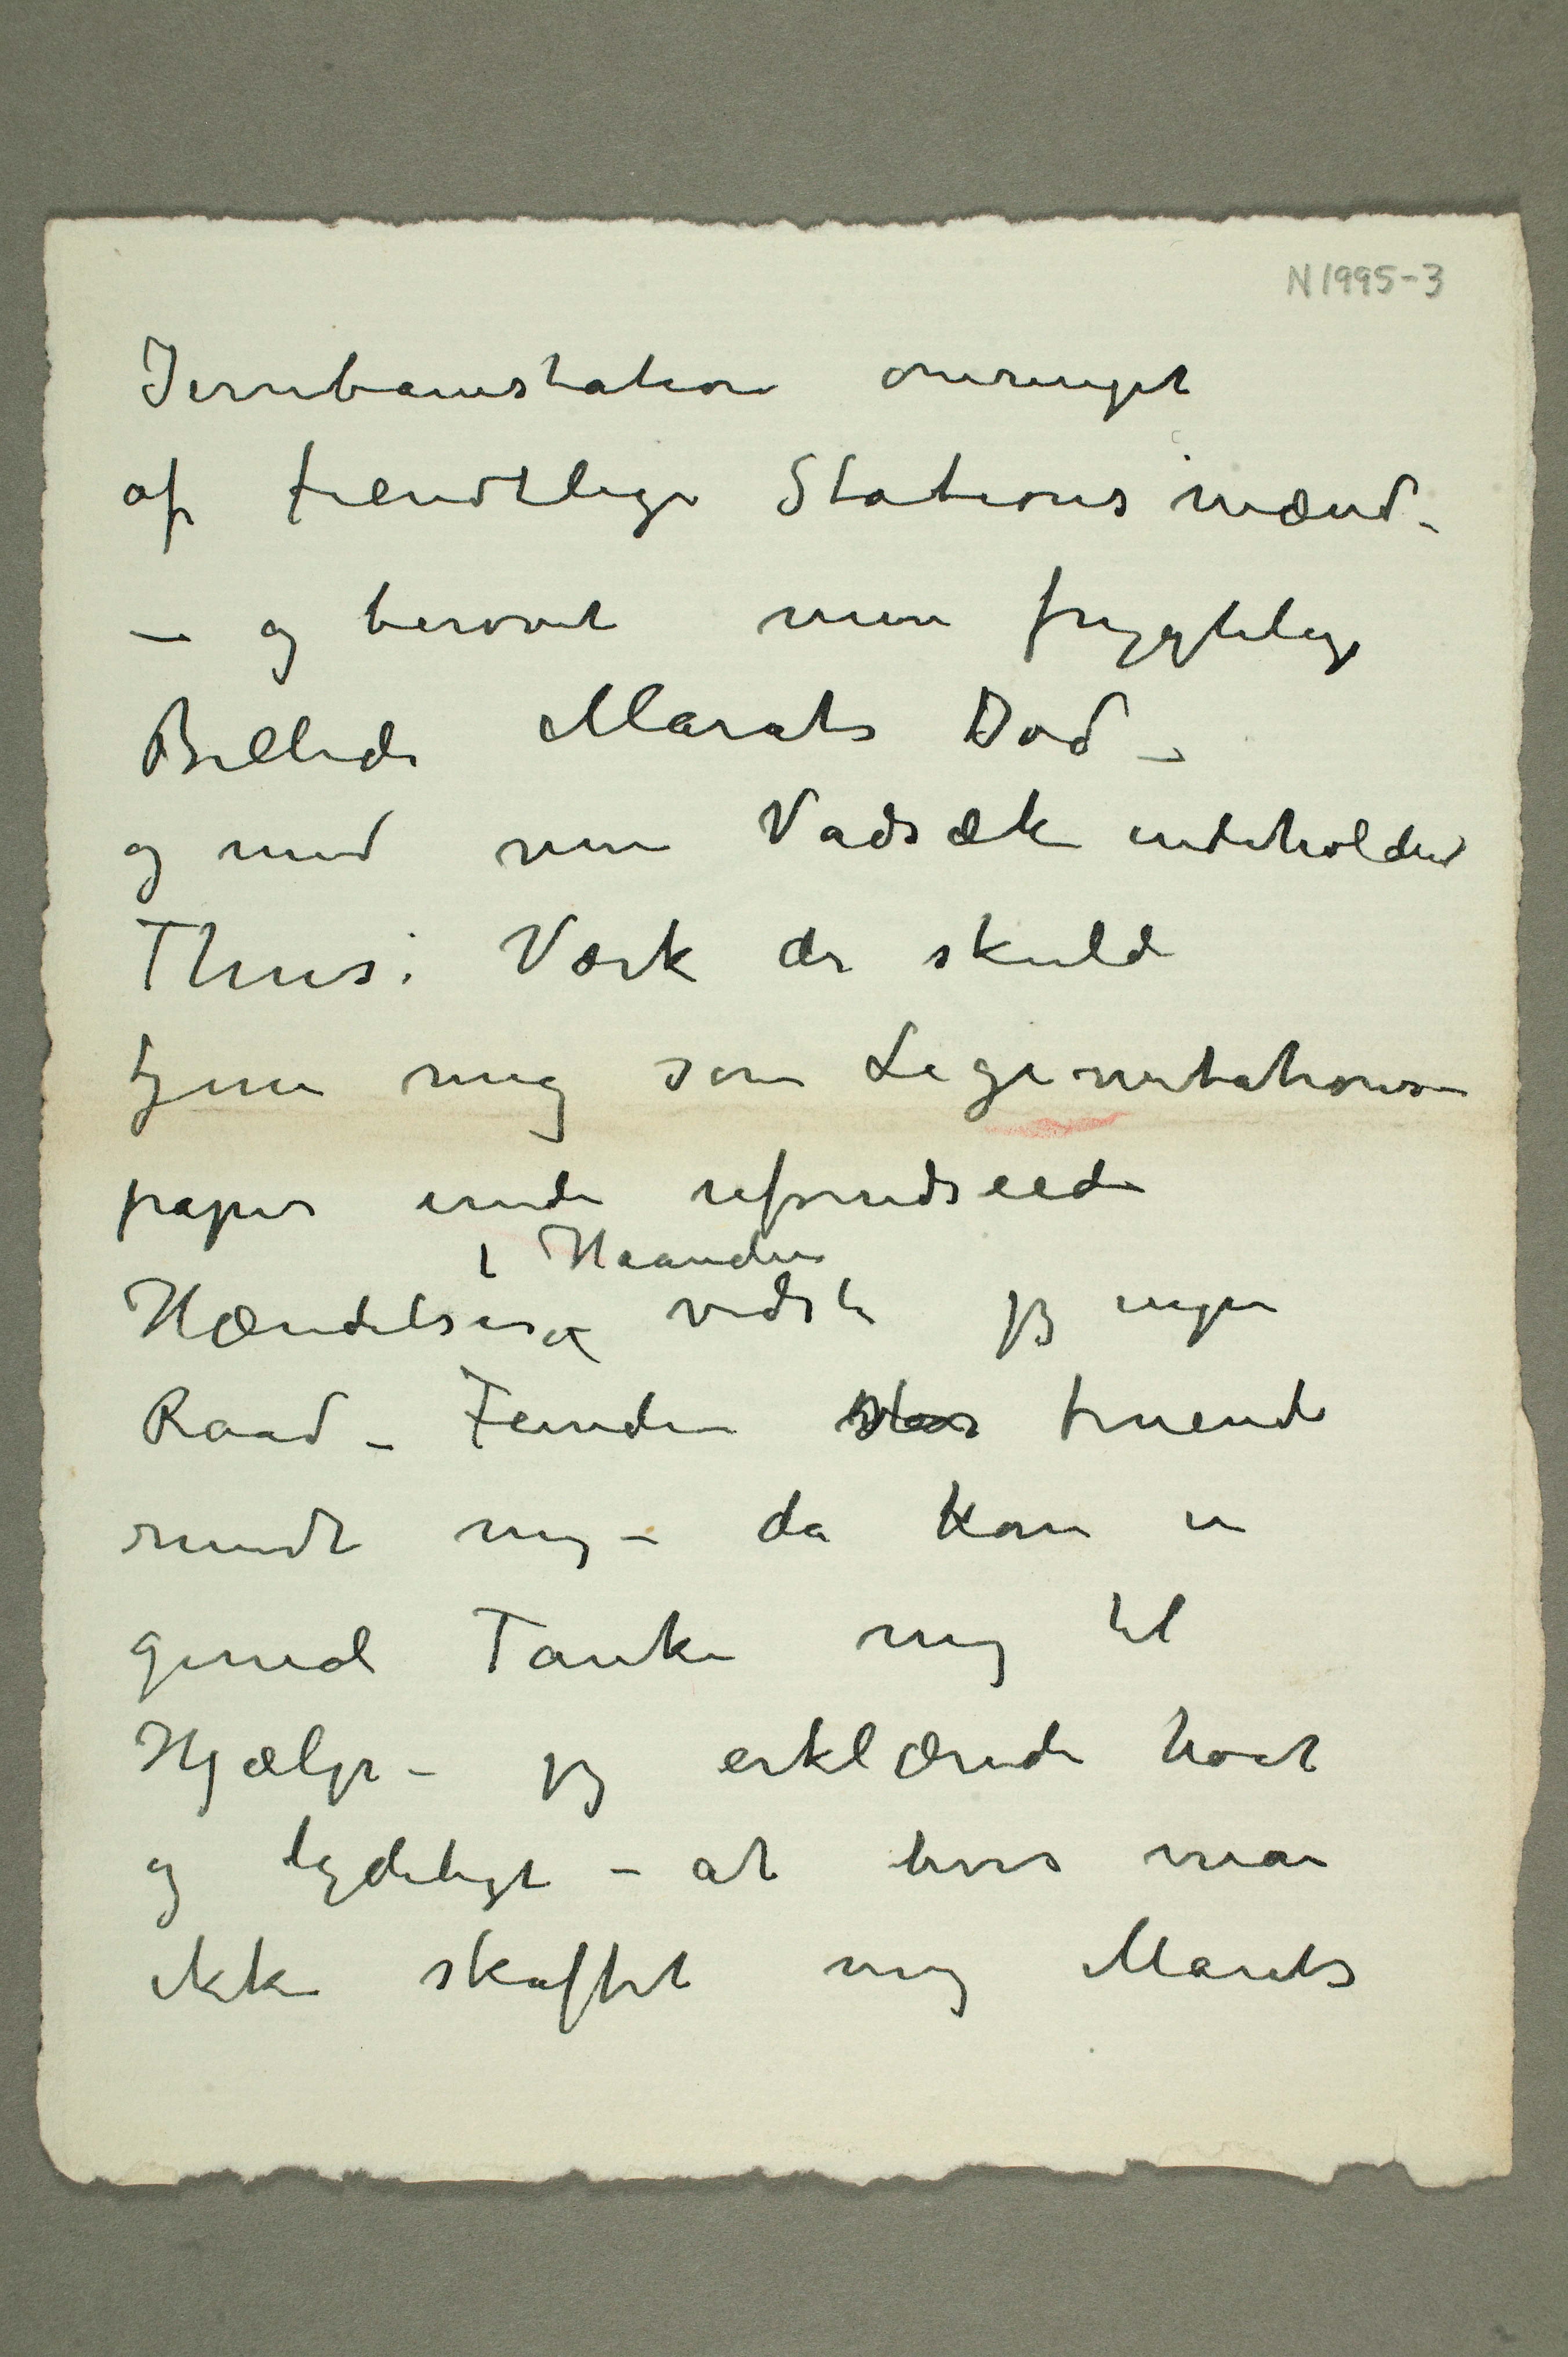 N 1995-3
Jernbanestation omringet
af fiendtlige Stationsmænd –
– og berøvet min frygtelige
Billede Marats Død –
og med min Vadsæk indeholdend
Thiis: Værk der skulde
tjene mig som Legimitations-
papir under uforudseede
i Haanden
Hændelser – vidste jeg ingen
Raad – Fienden staar truende
rundt mig – da kom en
genial Tanke mig til
Hjælp – jeg erklærede høit
og tydeligt – at hvis man
ikke skaffet mig Marats